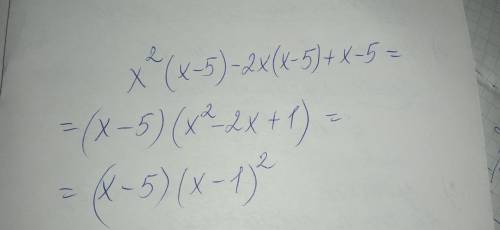 x²(x-5)-2x(x-5)+x-5=
=(x-5)(x²-2x+1)=
=(x-5)(x-1)²